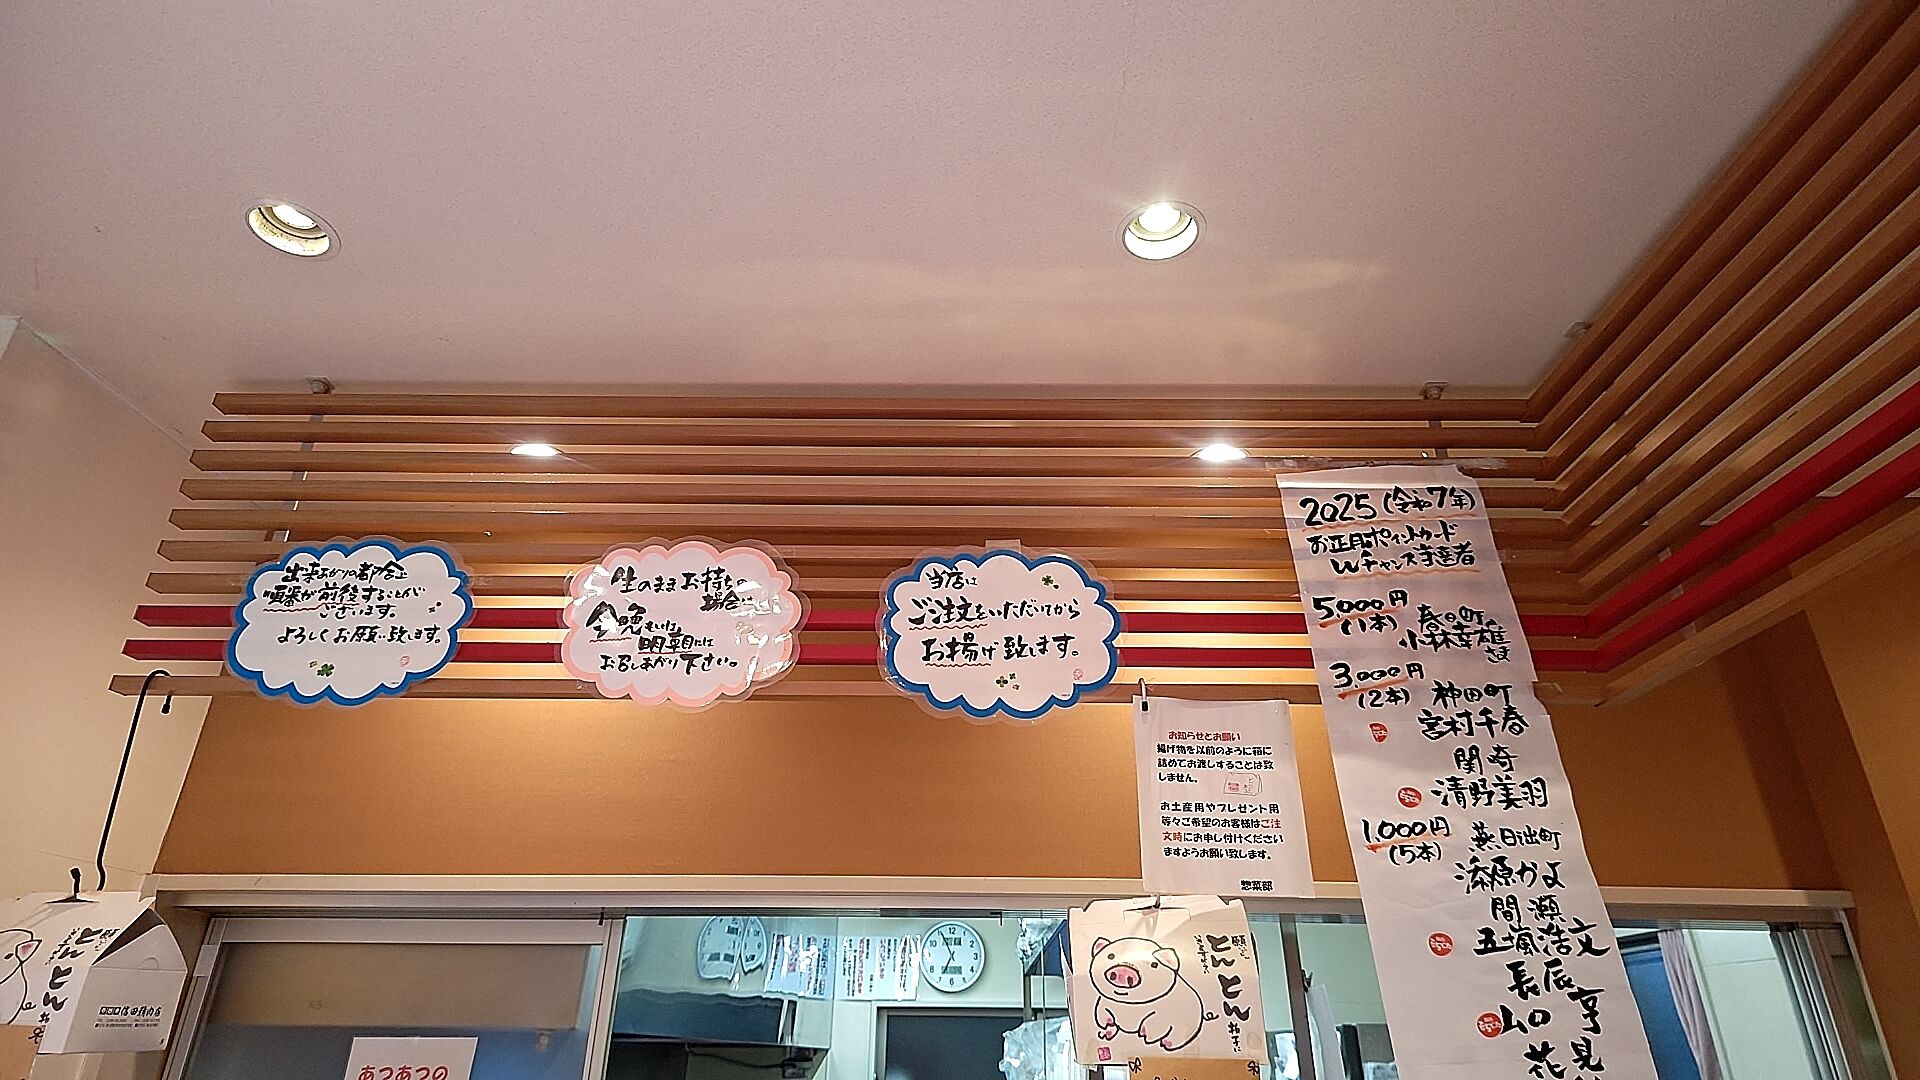 出来あがりの都合上
順番が前後することが
ございます。
よろしくお願い致します。
生のままお持ちの
場合は、
今晩もしくは
明朝には
お召しあがり下さい。
当店は
ご注文をいただいてから
お揚げ致します。
2025(令和7年)
お正月ポイントカード
Wチャンス当選者
5,000円
(1本)
春日町
小林幸雄
さま
3,000円
(2本)
神田町
宮村千春
関崎
清野美羽
1,000円
(5本)
燕日出町
添原かよ
間瀬
五十嵐浩文
長辰
山口
亨
花
見
お知らせとお願い
揚げ物を以前のように箱に
詰めてお渡しすることは致
しません。
お土産用やプレゼント用
等々ご希望のお客様はご注
文時にお申し付けください
ますようお願い致します。
惣菜部
とんとん
拍子に
とんとん
拍子に
信田精肉店
あつあつの